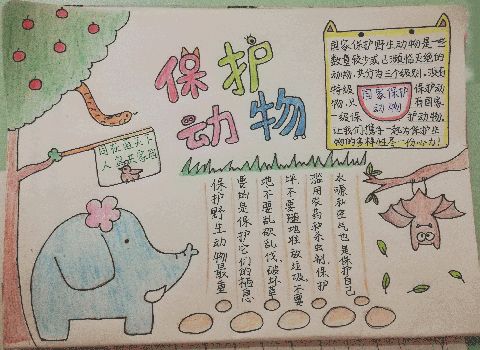 保护
动物
国家保护野生动物是一些
数量较少或已濒临灭绝的
动物,共分为三个级别,没有
特级 保护动
物.只 有国家
一级保 护动物,
让我们携手一起为保护生
物的多样性尽一份心力!
国家保护
动物
天下
共家园
保护野生动物最重
要的是保护它们的栖息
地,不要乱砍乱伐,破坏草
坪,不要随地堆放垃圾,不要
滥用农药和杀虫剂,保护
水源和空气也是保护自己